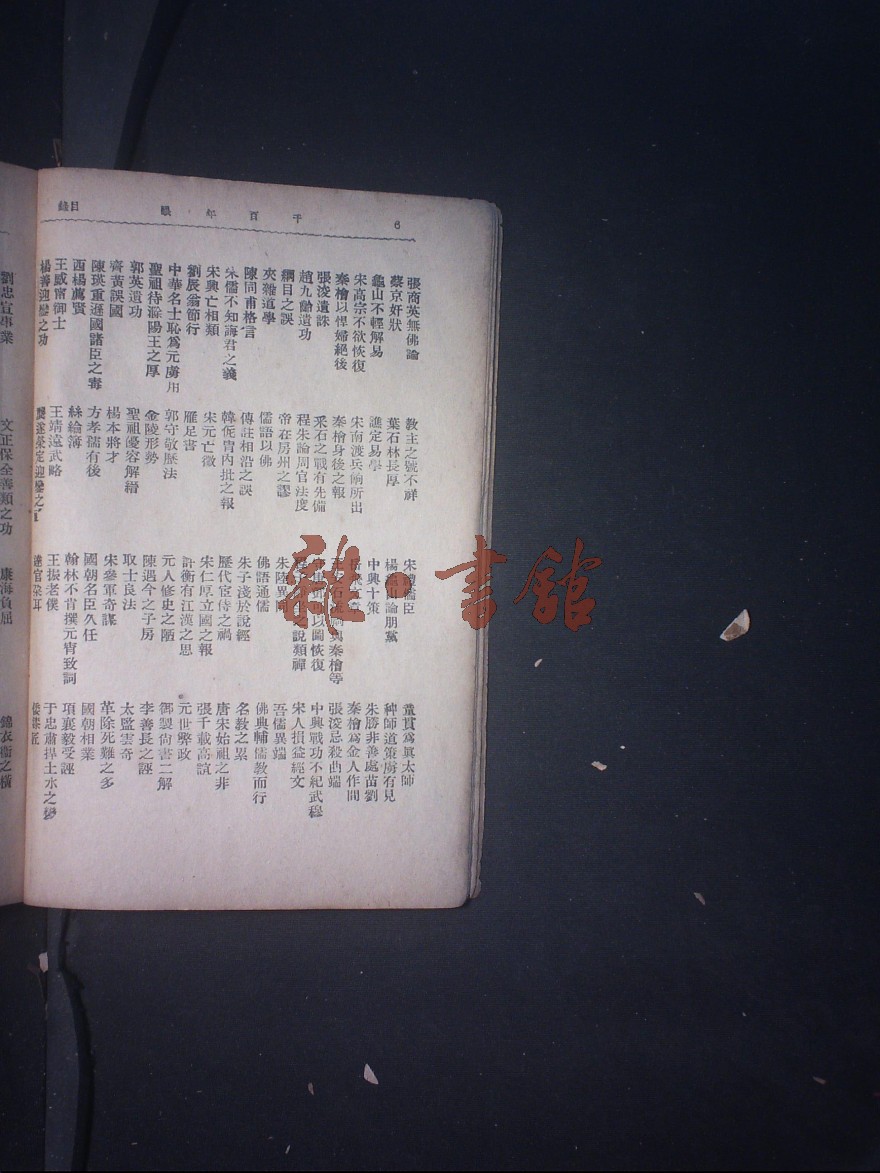 6 千百年眼 目錄
張商英無佛論 教主之號不祥 宋 儒臣 童貫爲眞太師
蔡京奸狀 葉石林長厚 楊龜山論朋黨 种師道策虜有見
龜山不輕解易 譙定易學 中興十策 朱勝非善處苗劉
宋高宗不欲恢復 宋南渡兵餉所出 秦檜爲金人作間
秦檜以悍婦絕後 秦檜身後之報 與秦檜等 張浚忌殺曲端
張浚遺誅 采石之戰有先備 以圖恢復 中興戰功不紀武穆
趙九齡遺功 程朱論周官法度 之說類禪 宋人損益經文
綱目之誤 帝在房州之謬 朱陸異同 吾儒異端
夾雜道學 儒語以佛 佛語通儒 佛典輔儒敎而行
陳同甫格言 傳註相沿之誤 朱子淺於說經 名敎之累
朱儒不知誨君之義 韓侂冑內批之報 歷代宦侍之禍 唐宋始祖之非
宋興亡相類 宋元亡徵 宋仁厚立國之報 張千載高誼
劉辰翁節行 雁足書 許衡有江漢之思 元世弊政
中華名士恥爲元虜用 郭守敬歷法 元人修史之陋 御製尙書二解
聖祖待滁陽王之厚 金陵形勢 陳遇今之子房 李善長之誣
郭英遺功 聖祖優容解縉 取士良法 太監雲奇
齊黃誤國 楊本將才 宋參軍奇謀 革除死難之多
陳瑛重遜國諸臣之毒 方孝孺有後 國朝名臣久任 國朝相業
西楊薦賢 絲綸簿 翰林不肯撰元宵致詞 項襄毅受誣
王威甯御士 王靖遠武略 王振老僕 于忠肅捍土水之變
楊善迎鑾之功 龔遂榮定迎鑾之宜 達官梁珥 倭漆匠
劉忠宣事業 文正保全善類之功 康海負屈 錦衣衞之橫
雜·書館